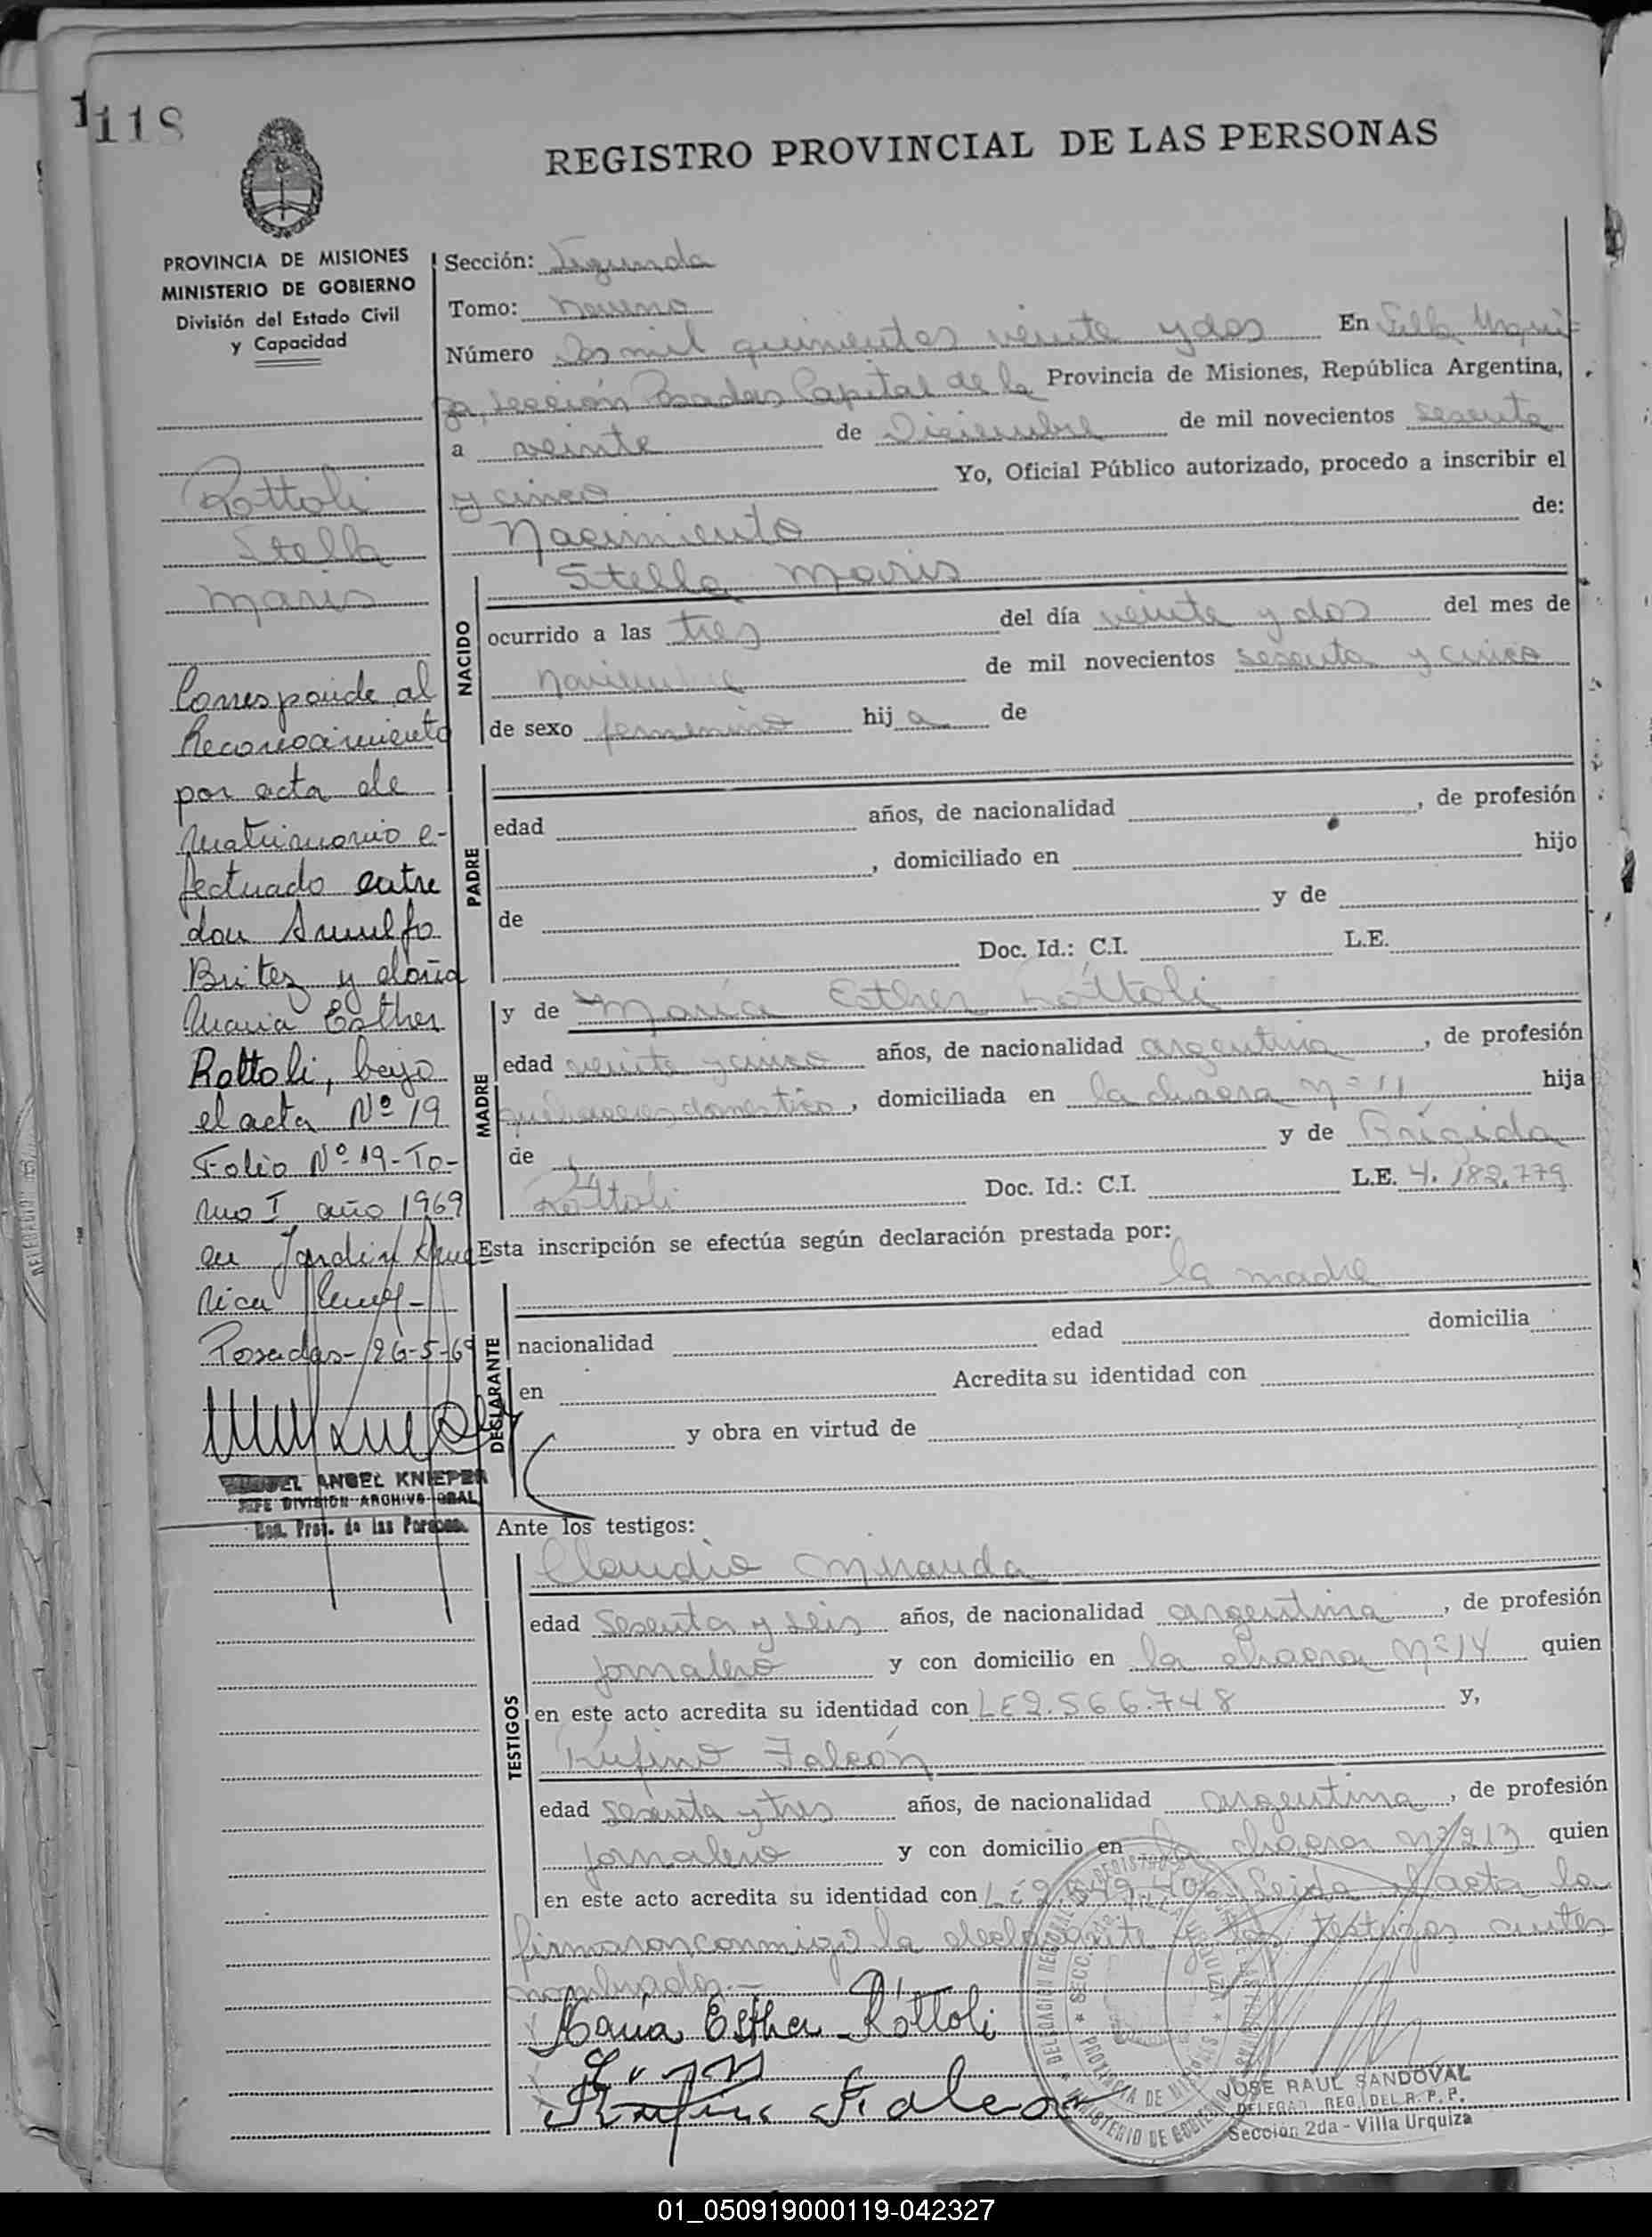 1118
REGISTRO PROVINCIAL DE LAS PERSONAS
PROVINCIA DE MISIONES
MINISTERIO DE GOBIERNO
División del Estado Civil
y Capacidad
Rottoli
Stella
Maris
Corresponde al
Reconocimiento
por acta de
Matrimonio e-
fectuado entre
don Arnulfo
Britez y doña
Maria Esther
Rottoli, bajo
el acta Nº 19
Folio Nº 19-To-
mo I año 1969
en Jardin Amé
rica
Posadas-26-5-69
ANGEL KNIEPER
JEFE DIVISION ARCHIVO GRAL
Reg. Prov. de las Personas
Sección: Segunda
Tomo: Noveno
Número Dos mil quinientos veinte y dos En Villa Urqui-
za, Sección Posadas Capital de la Provincia de Misiones, República Argentina,
a veinte de Diciembre de mil novecientos sesenta
y cinco Yo, Oficial Público autorizado, procedo a inscribir el
Nacimiento de:
NACIDO
Stella Maris
ocurrido a las tres del día veinte y dos del mes de
noviembre de mil novecientos sesenta y cinco
de sexo femenino hija de
PADRE
edad años, de nacionalidad , de profesión
, domiciliado en hijo
de y de
Doc. Id.: C.I. L.E.
MADRE
y de María Esther Rottoli
edad veinte y cinco años, de nacionalidad argentina, de profesión
quehaceres domestico, domiciliada en la chacra Nº 11 hija
de y de Brígida
Rottoli Doc. Id.: C.I. L.E. 4.182.779
Esta inscripción se efectúa según declaración prestada por:
DECLARANTE
la madre
nacionalidad edad domicilia
en Acredita su identidad con
y obra en virtud de
Ante los testigos:
TESTIGOS
Claudio Miranda
edad sesenta y seis años, de nacionalidad argentina, de profesión
jornalero y con domicilio en la chacra Nº 14 quien
en este acto acredita su identidad con LE2.566.748 y,
Rufino Falcón
edad sesenta y tres años, de nacionalidad argentina, de profesión
jornalero y con domicilio en la chacra Nº 213 quien
en este acto acredita su identidad con LE2.549.406. Leida el acta la
firmaron conmigo la declarante y los testigos antes
nombrados.-
María Esther Róttoli
Rufino Falcon
JOSE RAUL SANDOVAL
DELEGAD. REG. DEL R. P. P.
Sección 2da - Villa Urquiza
01_050919000119-042327